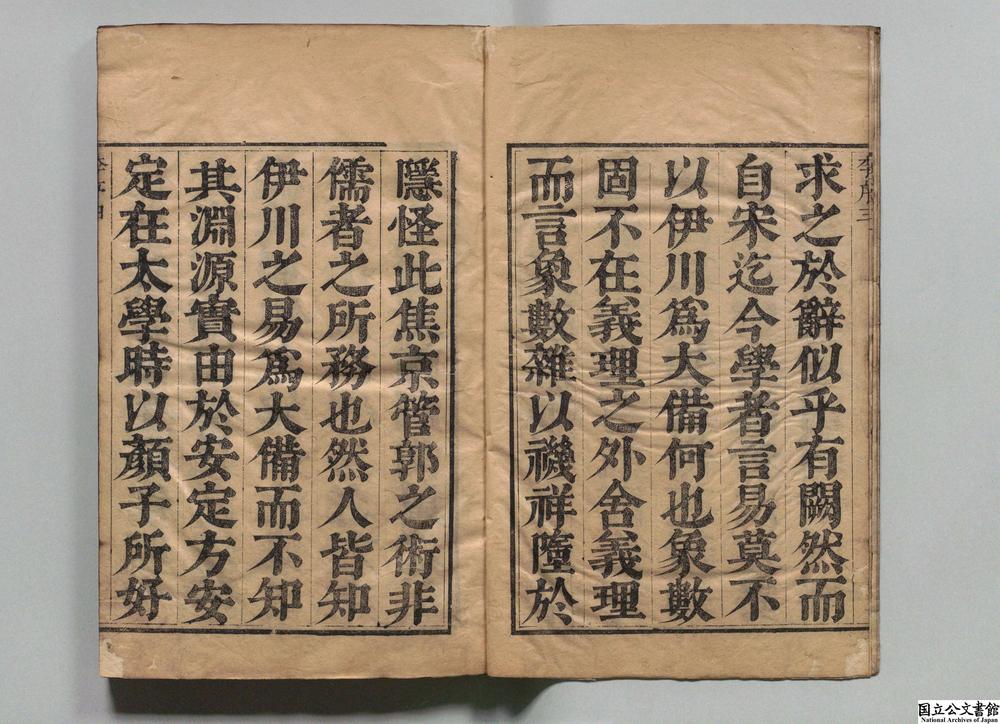 求之於辭似乎有闕然而
自宋迄今學者言易莫不
以伊川為大備何也象數
固不在義理之外舍義理
而言象數雜以禨祥墮於
隱怪此焦京管郭之術非
儒者之所務也然人皆知
伊川之易為大備而不知
其淵源實由於安定方安
定在太學時以顏子所好
国立公文書館
National Archives of Japan